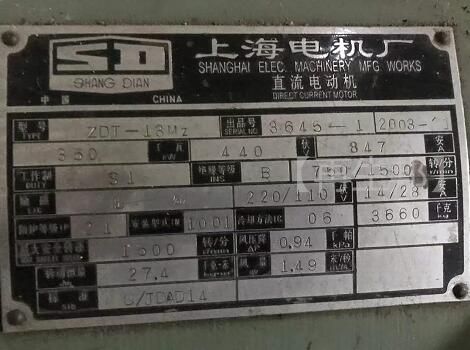 SD
SHANG DIAN
中国 CHINA
上海电机厂
SHANGHAI ELEC. MACHINERY MFG. WORKS
直流电动机
DIRECT CURRENT MOTOR
型号 TYPE 出品号 SERIAL NO. 3645-1 2003-
千瓦 KW 440 伏 V 847 安 A
工作制 DUTY S1 绝缘等级 INS B 750/1500 转/分 r/min
励磁 EXC 220/110 伏 V 14/28 安 A
防护等级IP 21 安装型式IM 1001 冷却方法IC 06 3660 千克 kg
1500 转/分 r/min 风压降 ΔP 0.94 千帕 kPa
27.4 风量 1.49 米³/秒 m³/s
标准